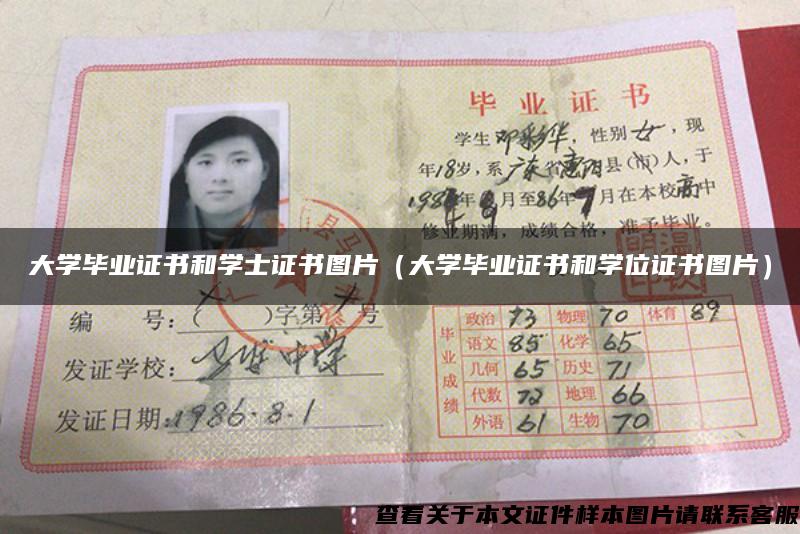 毕业证书
学生邓彩华，性别女，现
年18岁，系广东省惠阳县（市）人，于
1984年9月至86年7月在本校高中
修业期满，成绩合格，准予毕业。
大学毕业证书和学士证书图片（大学毕业证书和学位证书图片）
编 号：（ ）字第 号
发证学校：
中学
发证日期：1986.8.1
毕业成绩
政治 73 物理 70 体育 89
语文 85 化学 65
几何 65 历史 71
代数 72 地理 66
外语 61 生物 70
查看关于本文证件样本图片请联系客服